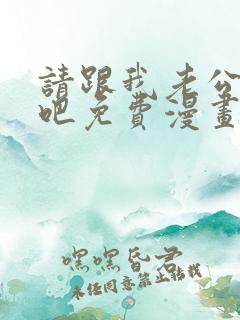 請跟我老公
吧免費漫畫
嘿嘿昏君
未经同意禁止转载